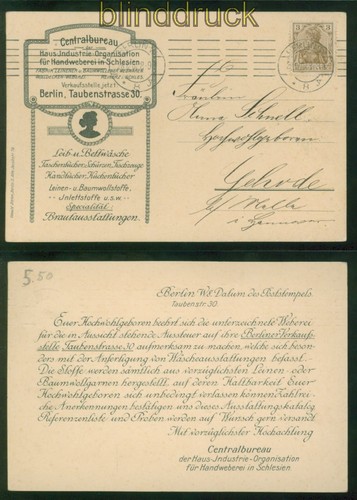 blinddruck
Centralbureau
der
Haus-Industrie-Organisation
für Handweberei in Schlesien
Verkaufsstelle jetzt
Berlin, Taubenstrasse 30.
Leib- u. Bettwäsche
Taschentücher, Schürzen, Tischzeuge
Handtücher, Küchentücher
Leinen- u. Baumwollstoffe,
Inlettstoffe u.s.w.
Spezialität:
Brautausstattungen.
3
Fräulein
Anna Schnell
Hochwohlgeboren
i. Hannover
5.50
Berlin W8. Datum des Poststempels
Taubenstr. 30.
Euer Hochwohlgeboren beehrt sich die unterzeichnete Weberei
für die in Aussicht stehende Aussteuer auf ihre Berliner Verkaufs-
stelle Taubenstrasse 30 aufmerksam zu machen, welche sich beson-
ders mit der Anfertigung von Wäscheausstattungen befasst.
Die Stoffe werden sämtlich aus vorzüglichsten Leinen- oder
Baumwollgarnen hergestellt, auf deren Haltbarkeit Euer
Hochwohlgeboren sich unbedingt verlassen können. Zahlrei-
che Anerkennungen bestätigen uns dieses. Ausstattungskatalog
Referenzenliste und Proben werden auf Wunsch gern versandt.
Mit vorzüglichster Hochachtung
Centralbureau
der Haus-Industrie-Organisation
für Handweberei in Schlesien